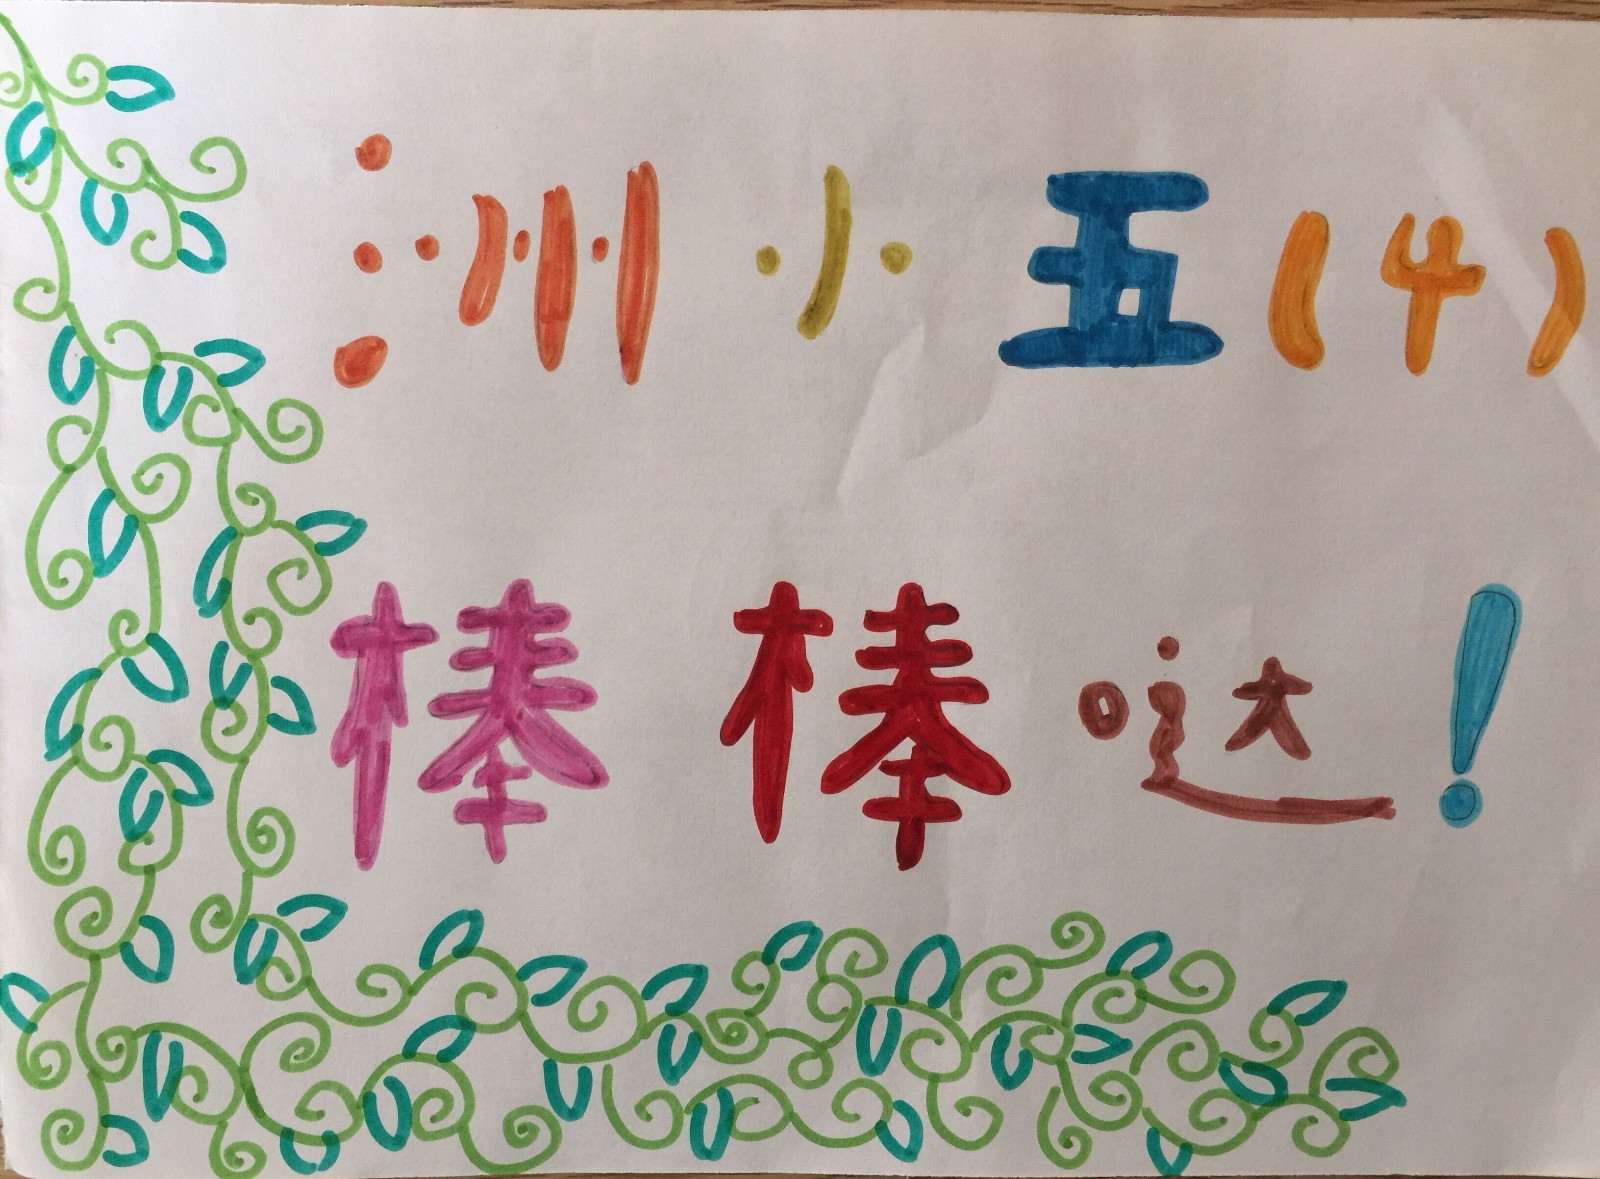 洲小五(4)
棒棒哒!